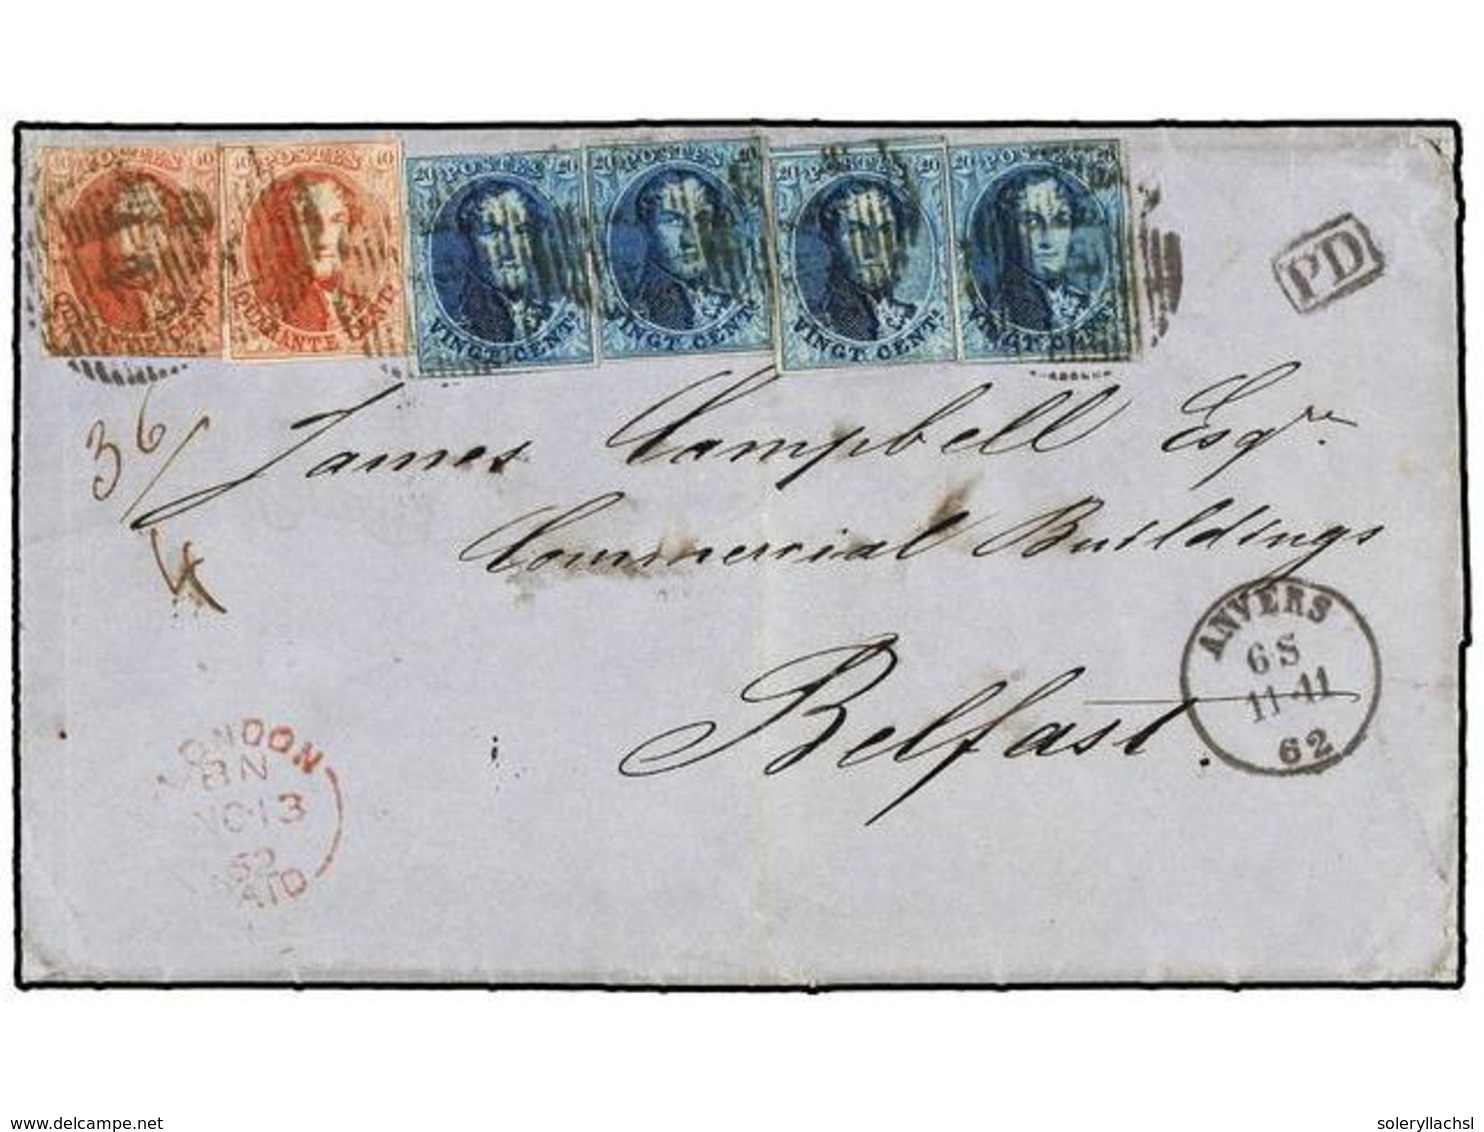 40 POSTES 40
QUARANTE CENT.
40 POSTES 40
QUARANTE CENT.
20 POSTES 20
VINGT. CENTS
20 POSTES 20
VINGT. CENTS
20 POSTES 20
VINGT. CENTS
20 POSTES 20
VINGT. CENTS
PD
36/
4
James Campbell Esqre.
Commercial Buildings
Belfast.
ANVERS
6S
11-11
62
LONDON
BN
NO13
62
PAID
delcampe.net
soleryllachsl